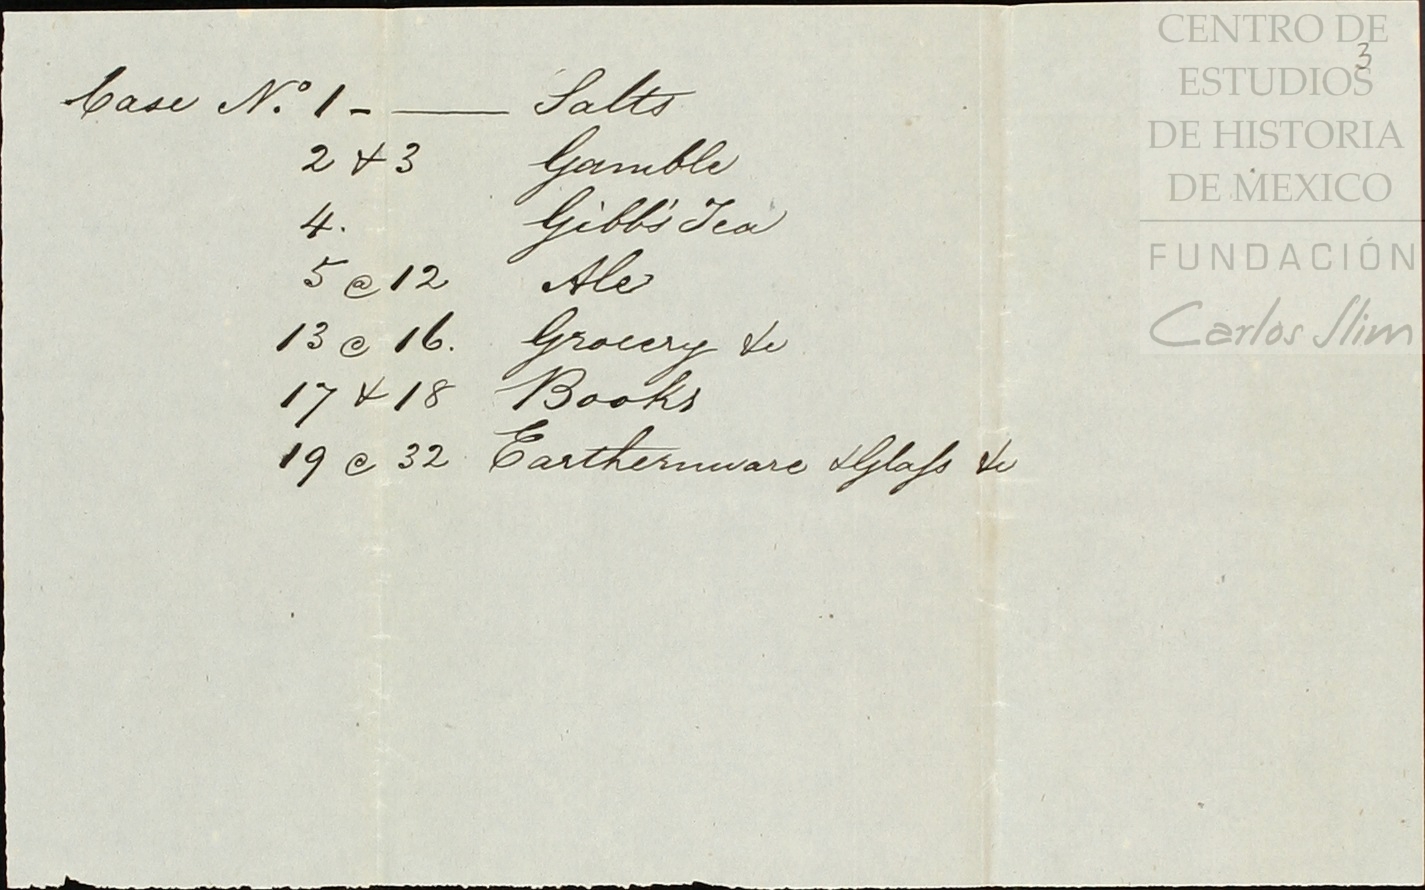 CENTRO DE
ESTUDIOS
DE HISTORIA
DE MEXICO
FUNDACIÓN
Carlos Slim
3
Case N.º 1 - —— Salts
2 & 3 Gamble
4. Gibb's Tea
5 @ 12 Ale
13 @ 16. Grocery &c
17 & 18 Books
19 @ 32 Earthernware & Glass &c